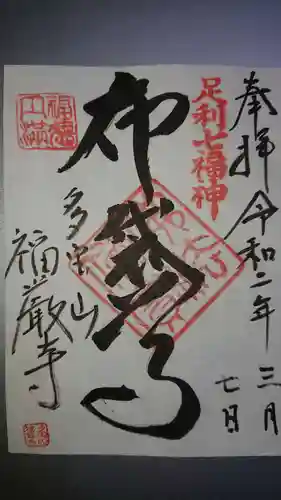 奉拝
令和二年
三月
七日
足利七福神
布袋尊
多宝山
福厳寺
福壽
円満